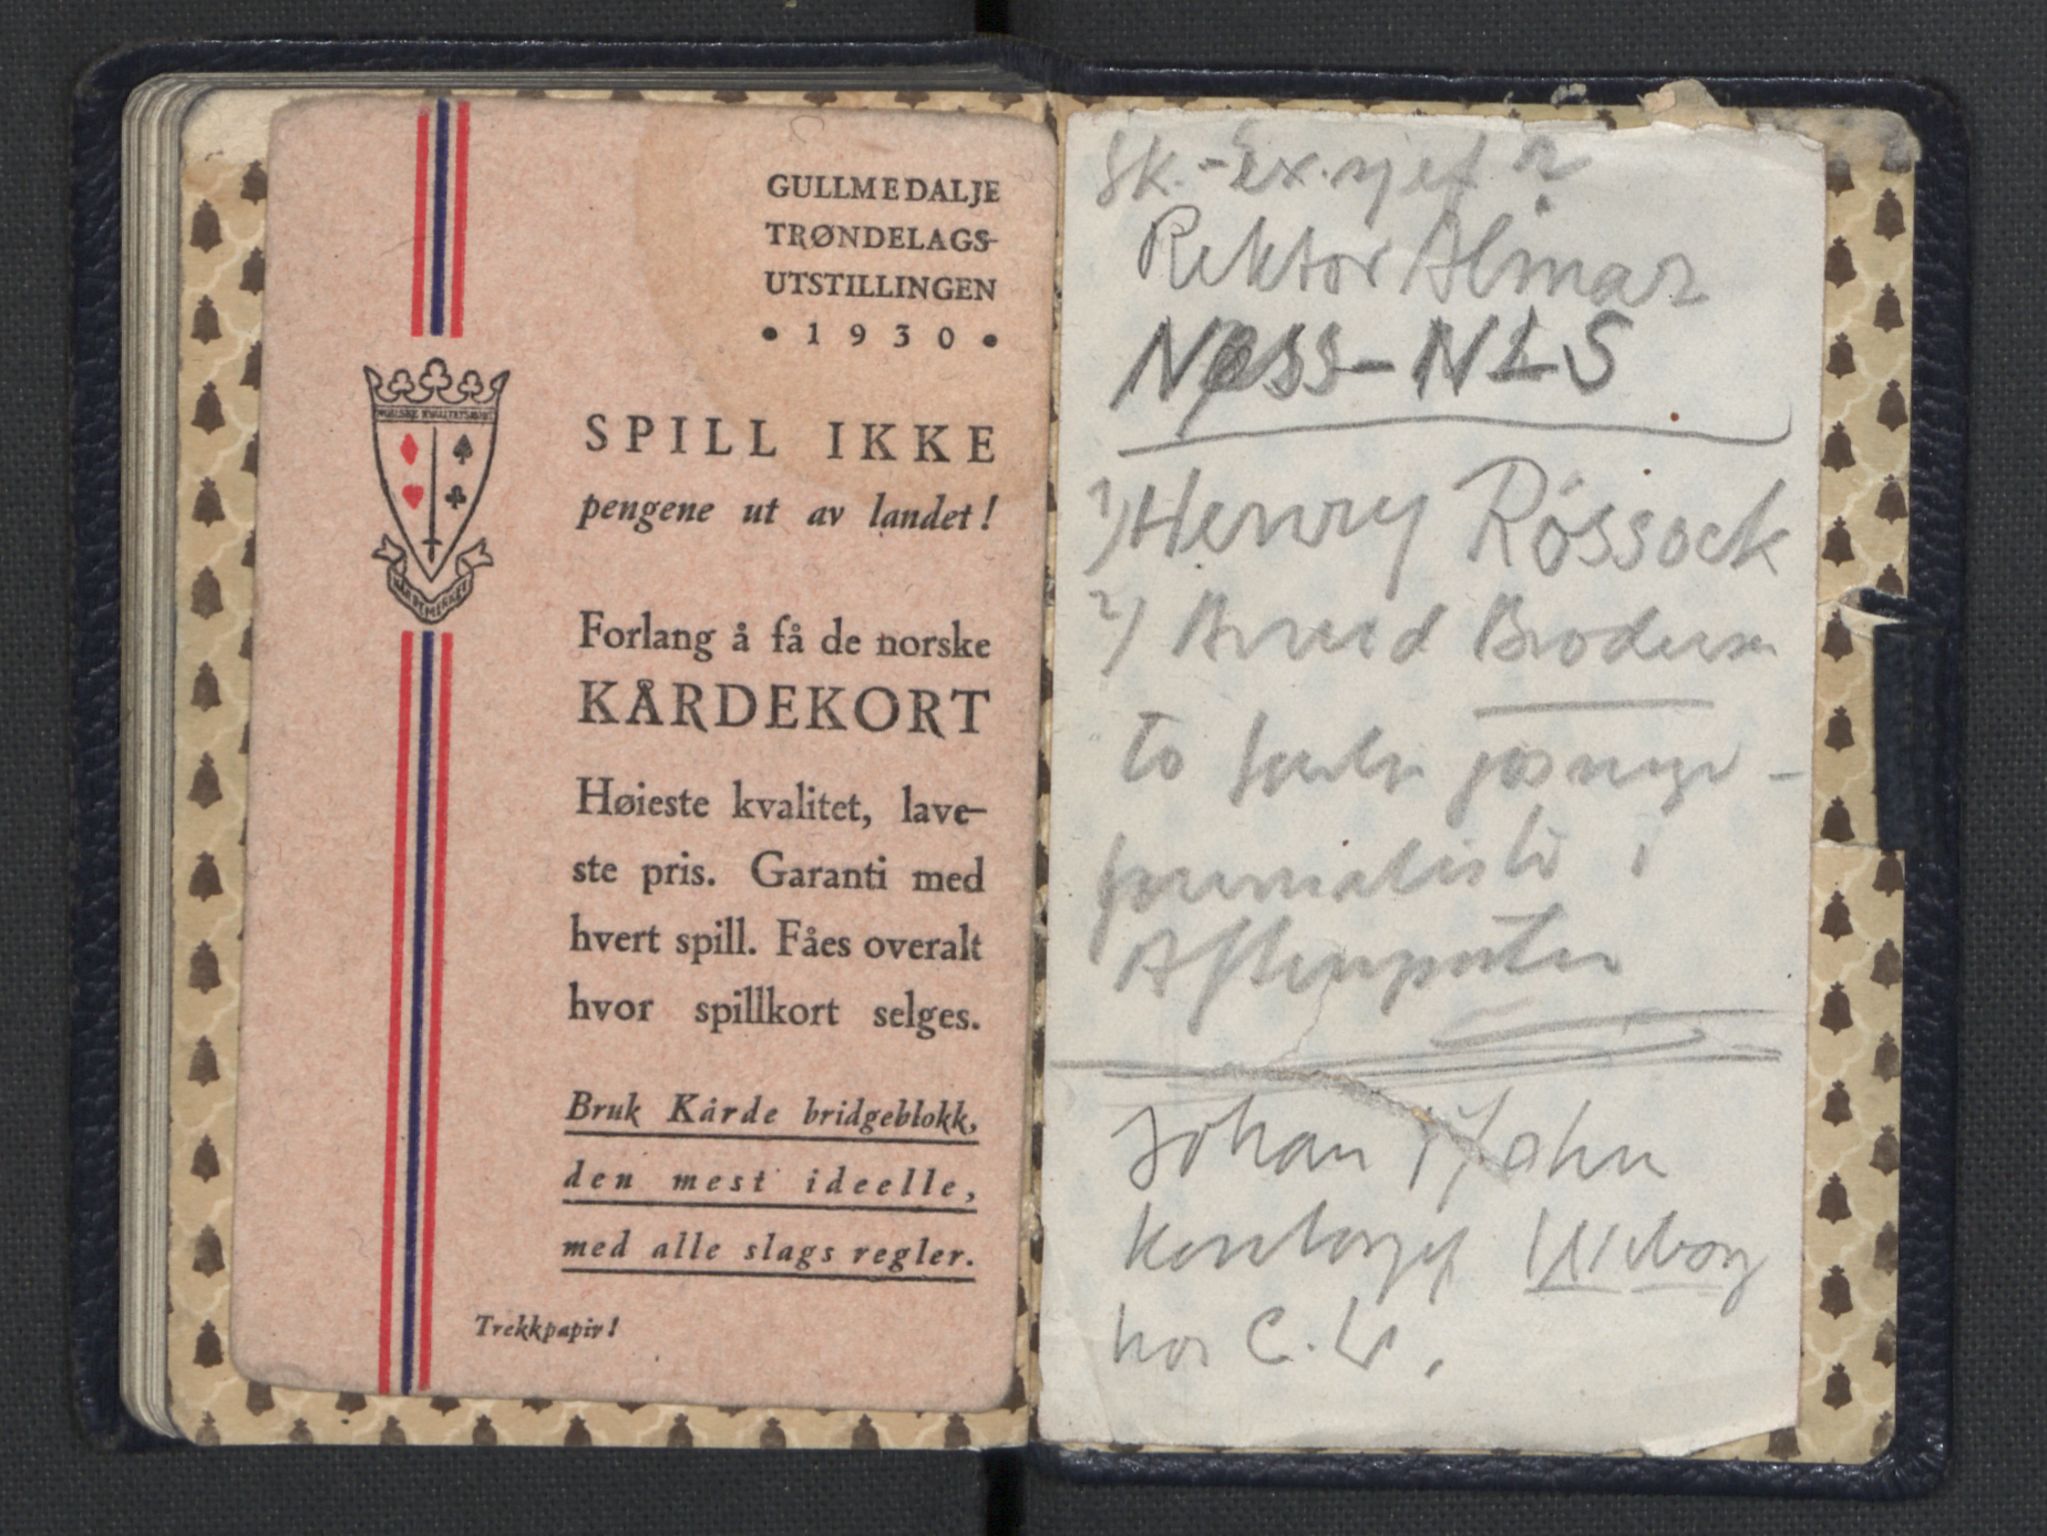 GULLMEDALJE
TRØNDELAGS-
UTSTILLINGEN
• 1930 •
SPILL IKKE
pengene ut av landet!
NORSKE KVALITETSKORT
KÅRDEMERKET
Forlang å få de norske
KÅRDEKORT
Høieste kvalitet, lave-
ste pris. Garanti med
hvert spill. Fåes overalt
hvor spillkort selges.
Bruk Kårde bridgeblokk,
den mest ideelle,
med alle slags regler.
Trekkpapir!
Sk.-
Rektor Almar
Næss-NLS
1) Henry Røssock
2) Arvid Brodersen
to
journalister i
Aftenposten
Johan
Wiborg
hos C. W.